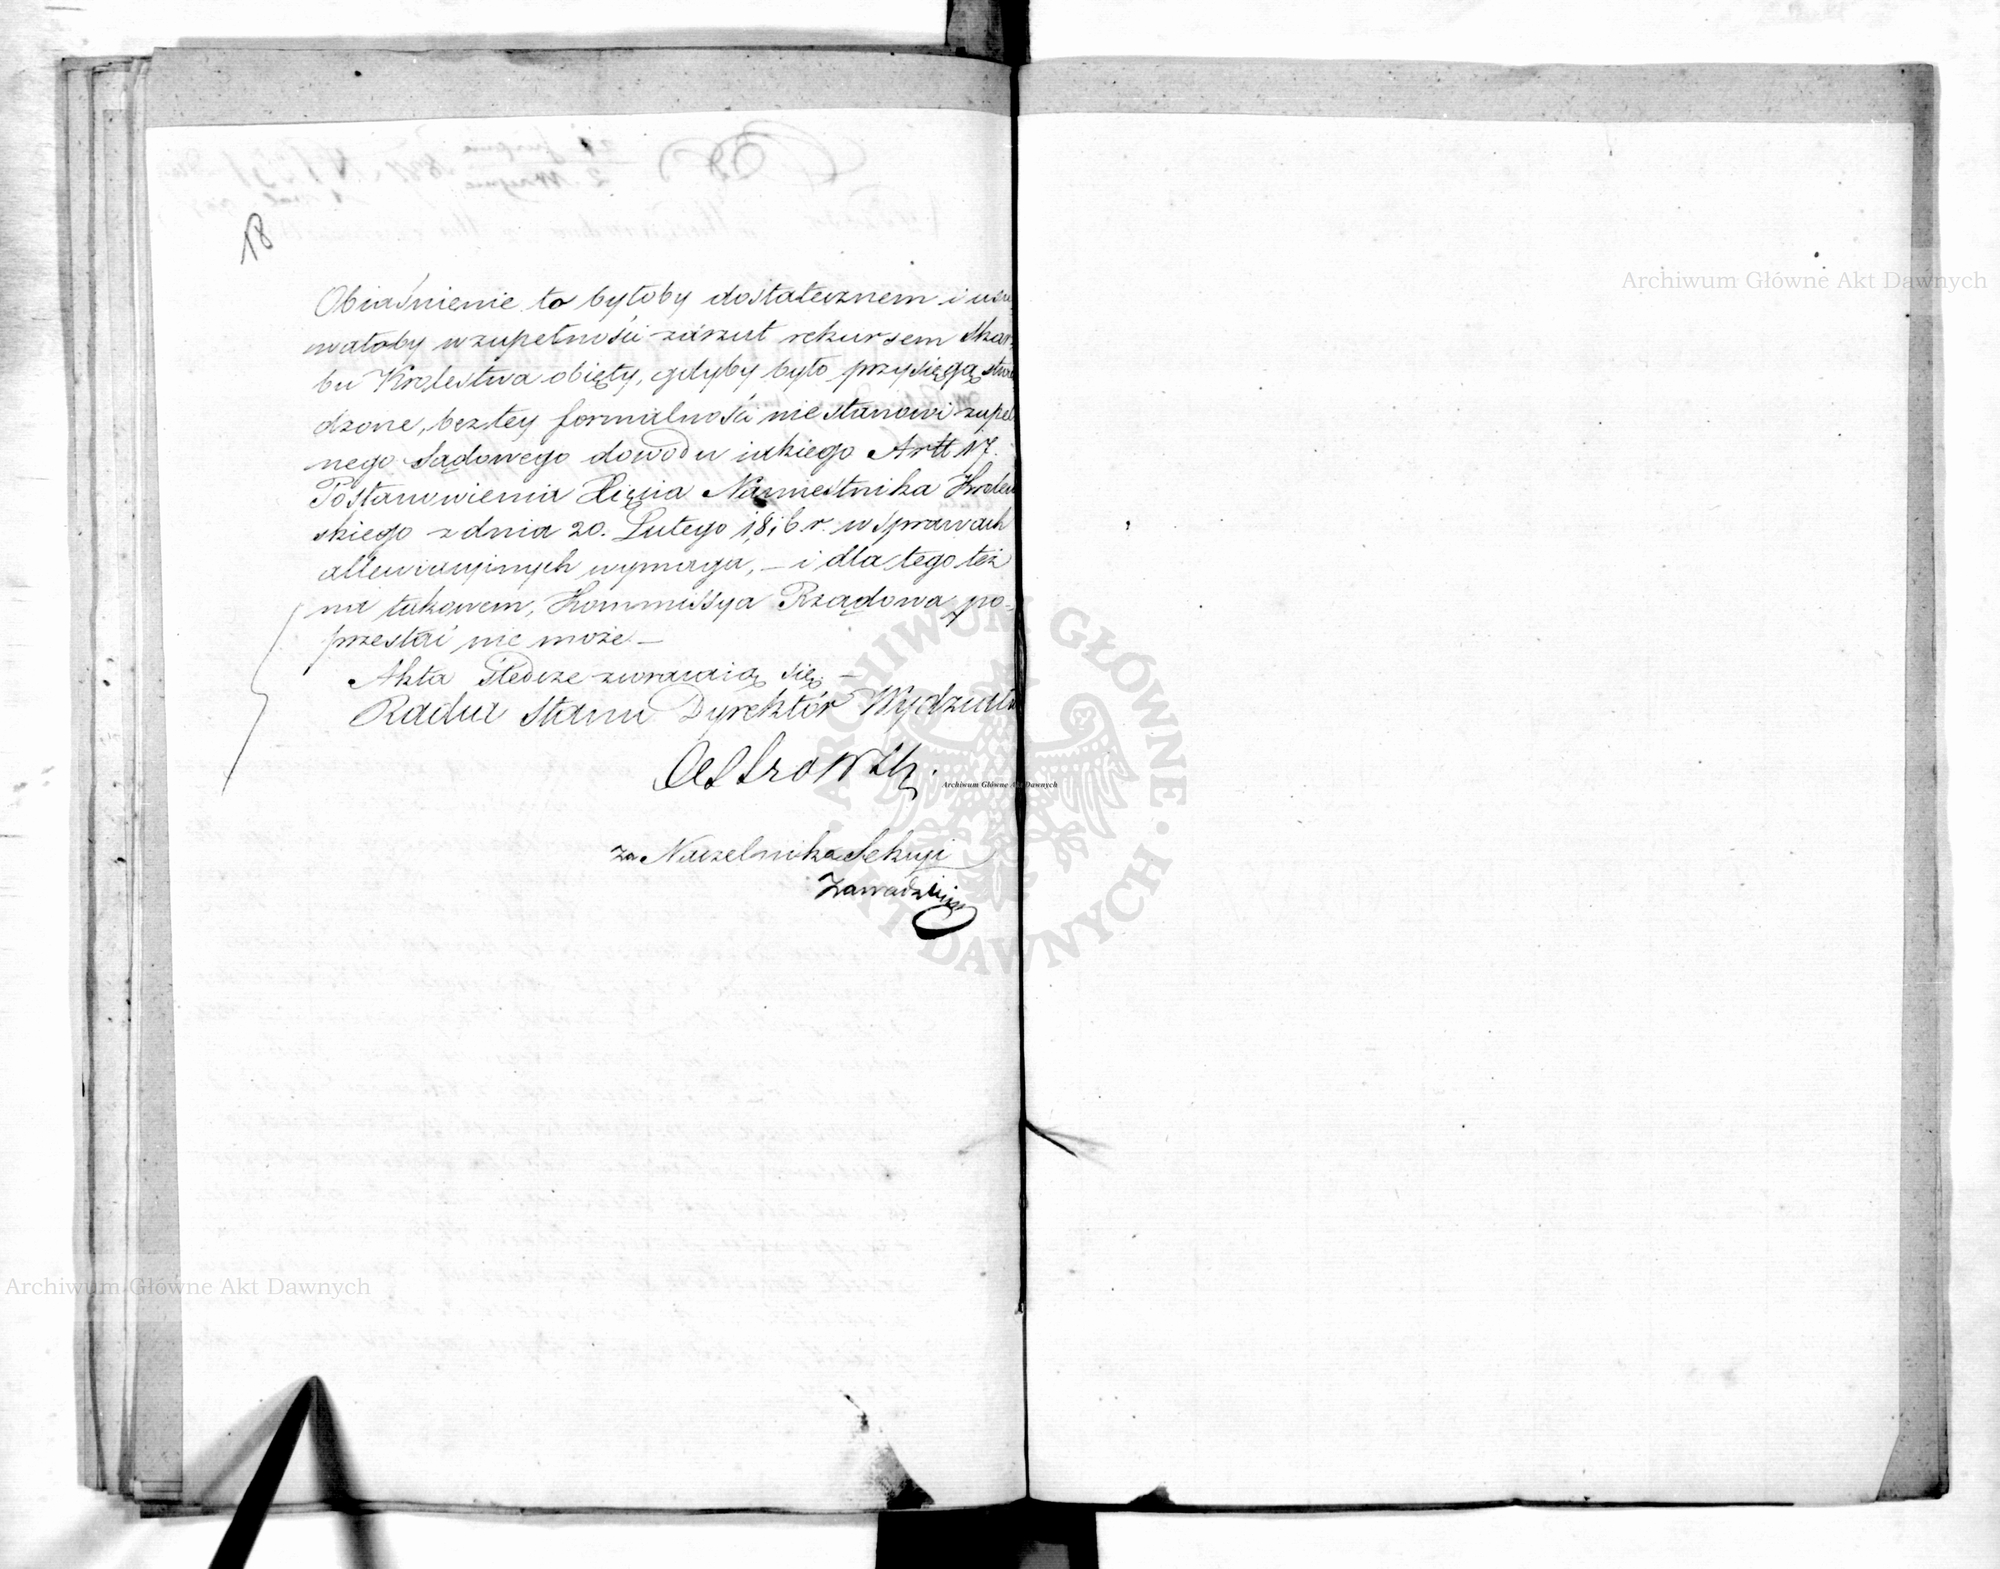 18
Obiaśnienie to byłoby dostatecznem i usu
wałoby w zupełności zarzut rekursem Skar
bu Krolestwa obięty, gdyby było przysięgą stwier
dzone, bez tey formalności nie stanowi zupeł
nego Sądowego dowodu iakiego Artt 17.
Postanowienia Xięcia Namiestnika Krolew
skiego z dnia 20. Lutego 1816 r. w sprawach
allewiacyjnych wymaga, – i dla tego też
na takowem, Kommissya Rządowa po-
przestać nie może –
Akta śledcze zwracaią się –
Radca Stanu Dyrektór Wydziału
Ostrowski
za Naczelnika Sekcyi
Zawadzki
Archiwum Główne Akt Dawnych
Archiwum Główne Akt Dawnych
Archiwum Główne Akt Dawnych
ARCHIWUM GŁÓWNE AKT DAWNYCH